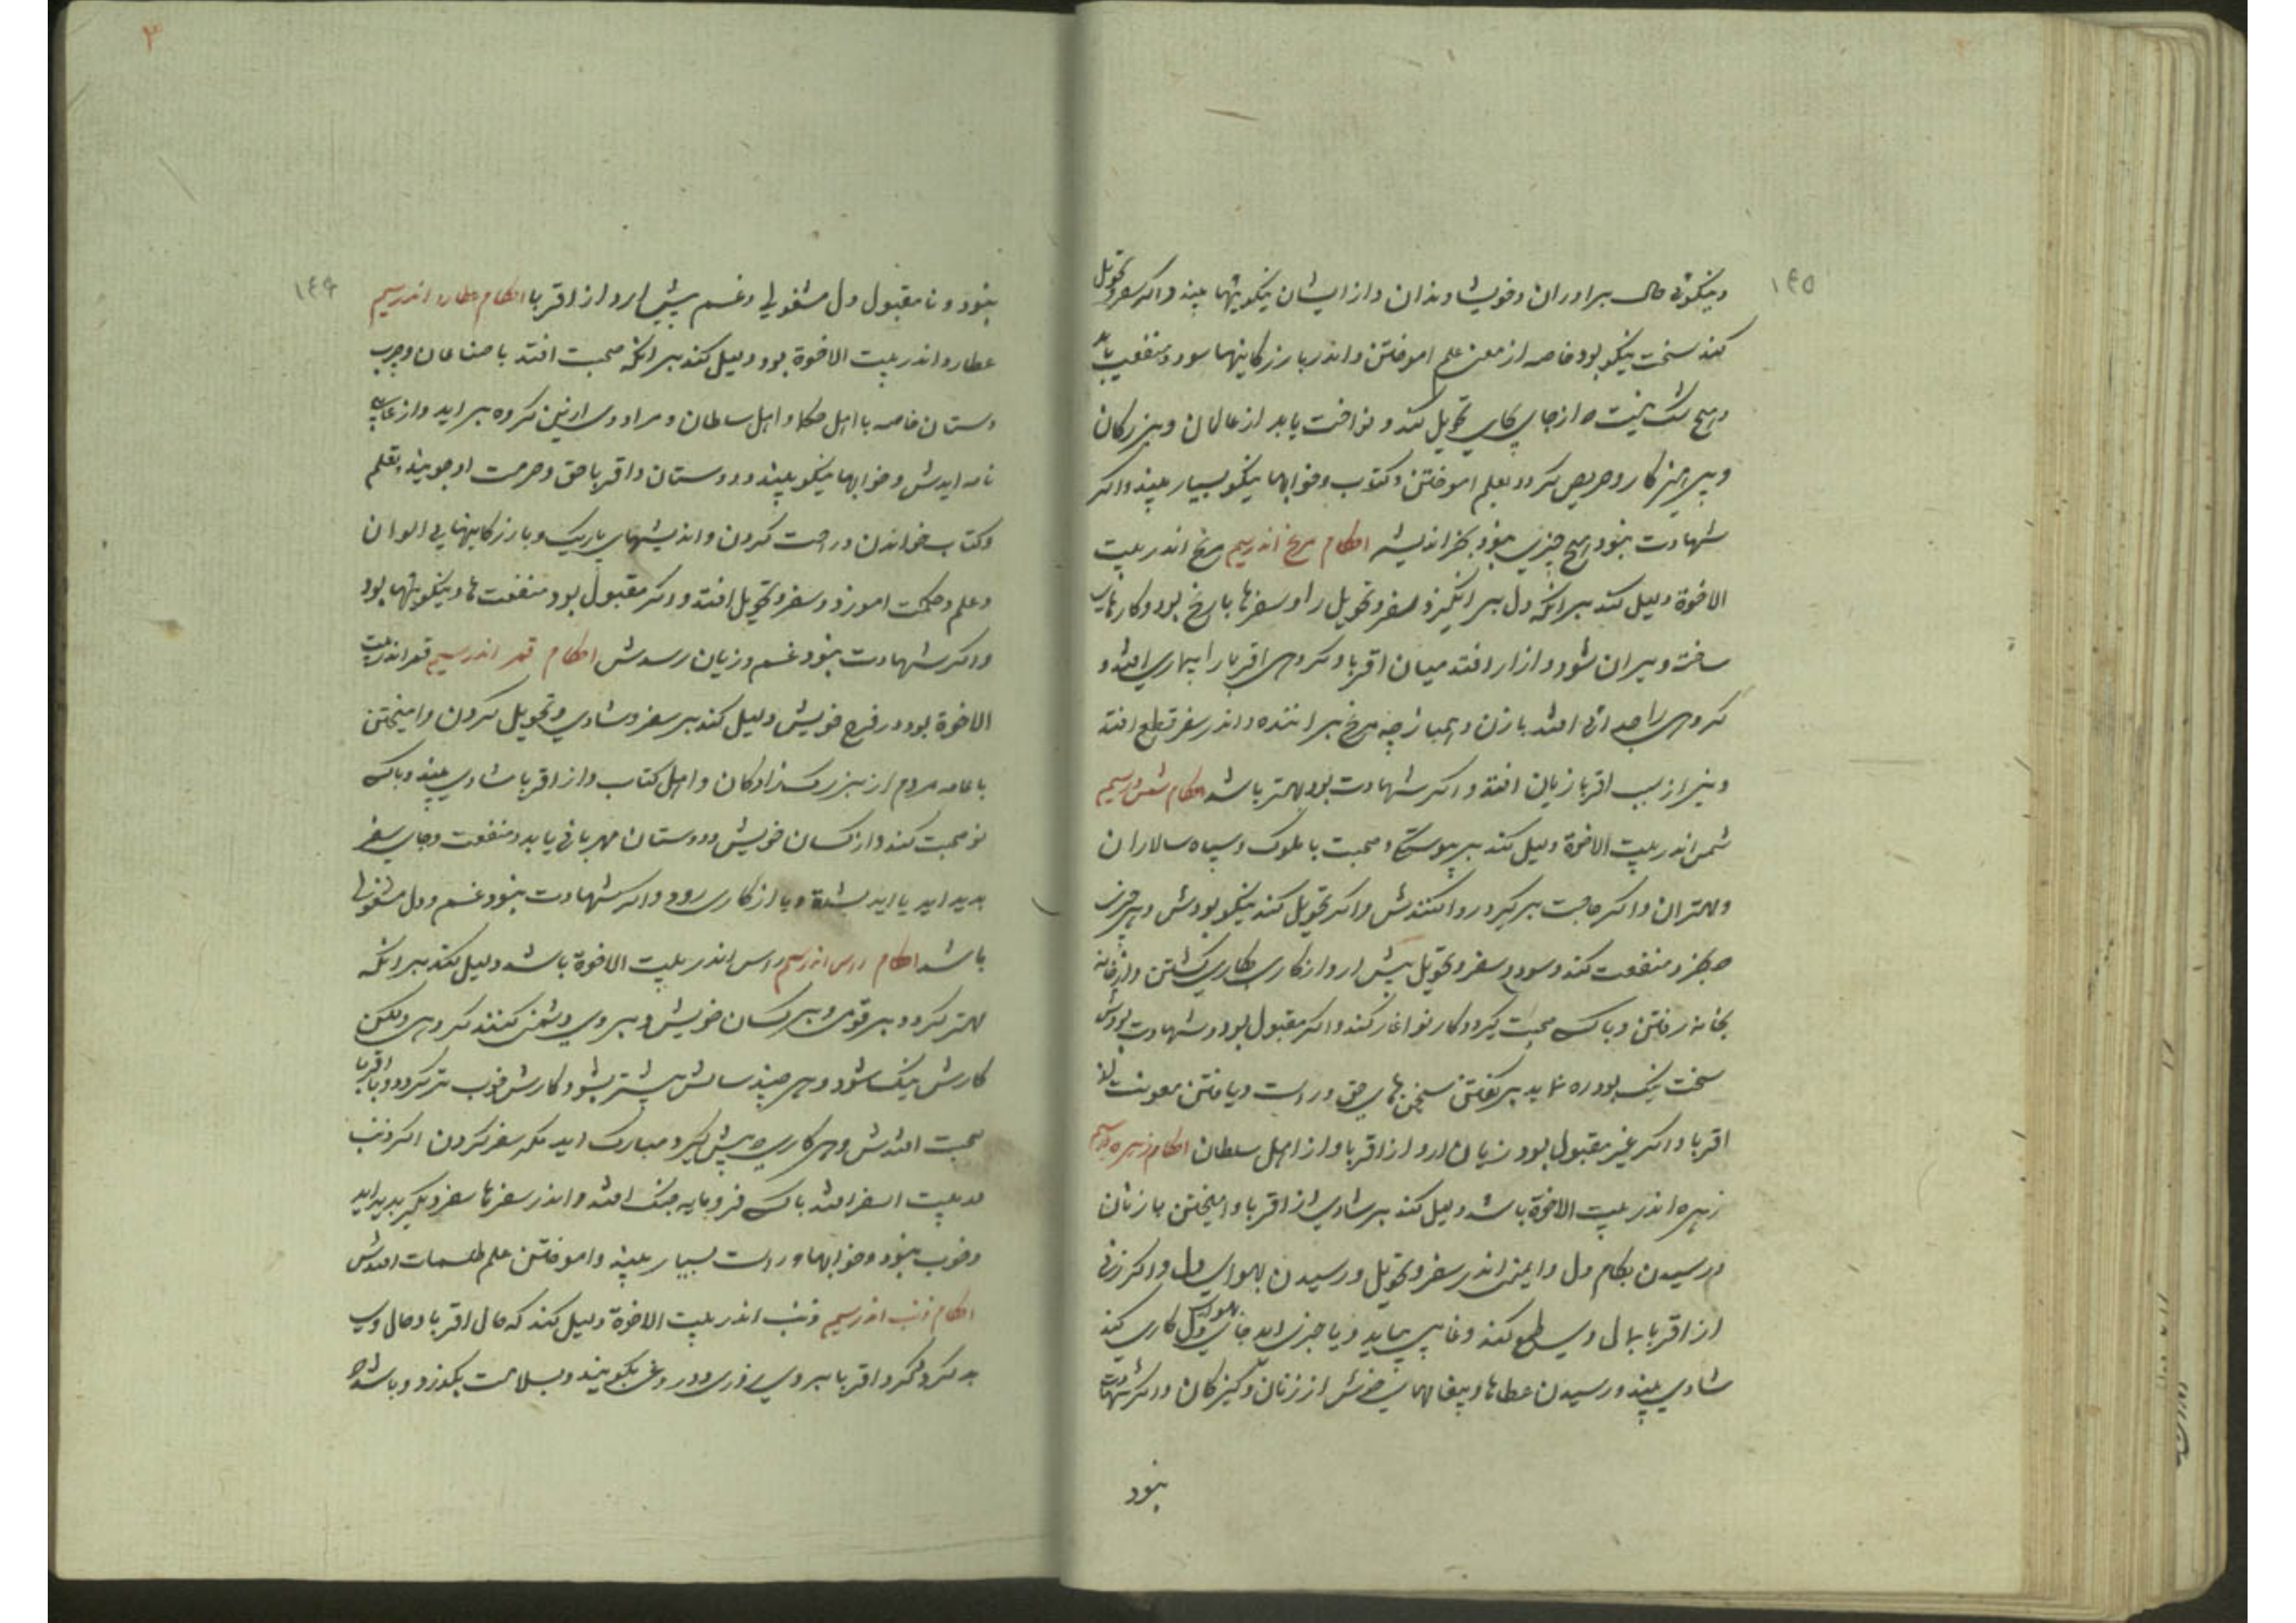 ۱٤٥
ونیکوئی حال برادران وخویشاوندان واز ایشان نیکوییها بیند واکر سفر وتحویل
کند سخت نیکو بود خاصه از معنی علم اموختن واندر بازرکانیها سود ومنفعت یابد
وهیچ شک نیست که از جای بجای تحویل کند ونواخت یابد از عالمان وبزرکان
وپرهیزکار وحریص کردد بعلم اموختن وکتوب وخوابها نیکو بسیار بیند واکر
شهادت نبود هیچ چیزی نبود بجز اندیشه احکام مریخ اندر سیم مریخ اندر بیت
الاخوة دلیل کند برانکه دل برانکیزد سفر وتحویل را وسفرها با رنج بود وکارهای
ساخته ویران شود وازار افتد میان اقربا وکروهی اقربا را بیماری افتد و
کروهی را جدائی افتد با زن وهمباز چه مریخ براننده واندر سفر قطع افتد
ونیز از سبب اقربا زیان افتد واکر شهادت بود بهتر باشد احکام شمس در سیم
شمس اندر بیت الاخوة دلیل کند بر پیوستکی وصحبت با ملوک وسپاه سالاران
ومهتران واکر حاجت برکیرد روا کنندش واکر تحویل کند نیکو بودش وهر چیزی
که بخرد منفعت کند وسود وسفر وتحویل پیش ارد از کاری بکاری کشتن واز خانه
بخانه رفتن وباکسی صحبت کیرد وکار نو اغاز کند واکر مقبول بود وشهادت بودش
سخت نیک بود ره نماید بر کفتن سخن های حق وراست ویافتن معونت از
اقربا واکر غیر مقبول بود زیان ارد از اقربا واز اهل سلطان احکام زهره در سیم
زهره اندر بیت الاخوة باشد دلیل کند بر شادی از اقربا وامیختن با زنان
ورسیدن بکام دل وایمنی اندر سفر وتحویل ورسیدن بهوای دل واکر زنی
از اقربا بمال وی طمع کند وفا یابد ویا چیزی اید بهوای دل کاری کند
شادی بیند ورسیدن عطاها وپیغامهای خوش از زنان وکنیزکان واکر شهادت
نبود
۳
۱٤۶
نبود ونا مقبول دل مشغولی وغم پیش ارد از اقربا احکام عطارد اندر سیم
عطارد اندر بیت الاخوة بود دلیل کند برانکه صحبت افتد با صناعان وچرب
دستان خاصه با اهل حکما واهل سلطان ومراد وی ازین کروه براید واز غایب
نامه ایدش وخوابها نیکو بیند ودوستان واقربا حق وحرمت او جویند وبقلم
وکتاب خواندن وراحت کردن واندیشهای باریک وبازرکانیها بی الوان
وعلم وحکمت اموزد وسفر وتحویل افتد واکر مقبول بود منفعت ها ونیکوییها بود
واکر شهادت نبود غم وزیان رسدش احکام قمر اندر سیم قمر اندر بیت
الاخوة بود در فرح خویش دلیل کند بر سفر وشادی وتحویل کردن وامیختن
با عامه مردم از بزرک زادکان واهل کتاب واز اقربا شادی بیند وباکسی
نو صحبت کند واز کسان خویش ودوستان مهربانی یابد ومنفعت وجای سفر
بدید اید واکر شهادت نبود غم ودل مشغولی
باشد احکام راس اندر سیم راس اندر بیت الاخوة باشد دلیل کند برانکه
مهتر کردد بر قومی وبر کسان خویش وبر وی دشمنی کنند کروهی ولیکن
کارش نیک شود وهر چند سالش بیشتر بشود کارش خوب تر کردد وبا اقربا
صحبت افتدش وهر کاری که پیش کیرد مبارک اید مکر سفر کردن اکر ذنب
در بیت السفر افتد باکسی فرومایه جنک افتد واندر سفرها سفر دیکر بدید اید
وخوب نبود وخوابها راست بسیار بیند واموختن علم طلسمات افتدش
احکام ذنب اندر سیم ذنب اندر بیت الاخوة دلیل کند که حال اقربا وحال وی
بد کردد واقربا بر وی دروغ بکویند وبسلامت بکذرد وباشد که